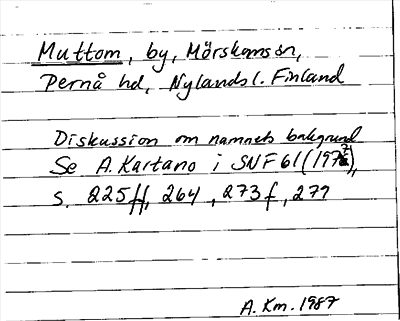 Muttom, by, Mörskomsn,
Pernå hd, Nylands l. Finland
Diskussion om namnets bakgrund
Se A. Kartano i SNF 61 (197
s. 225 ff, 264, 273 f, 279
A. Km. 1987